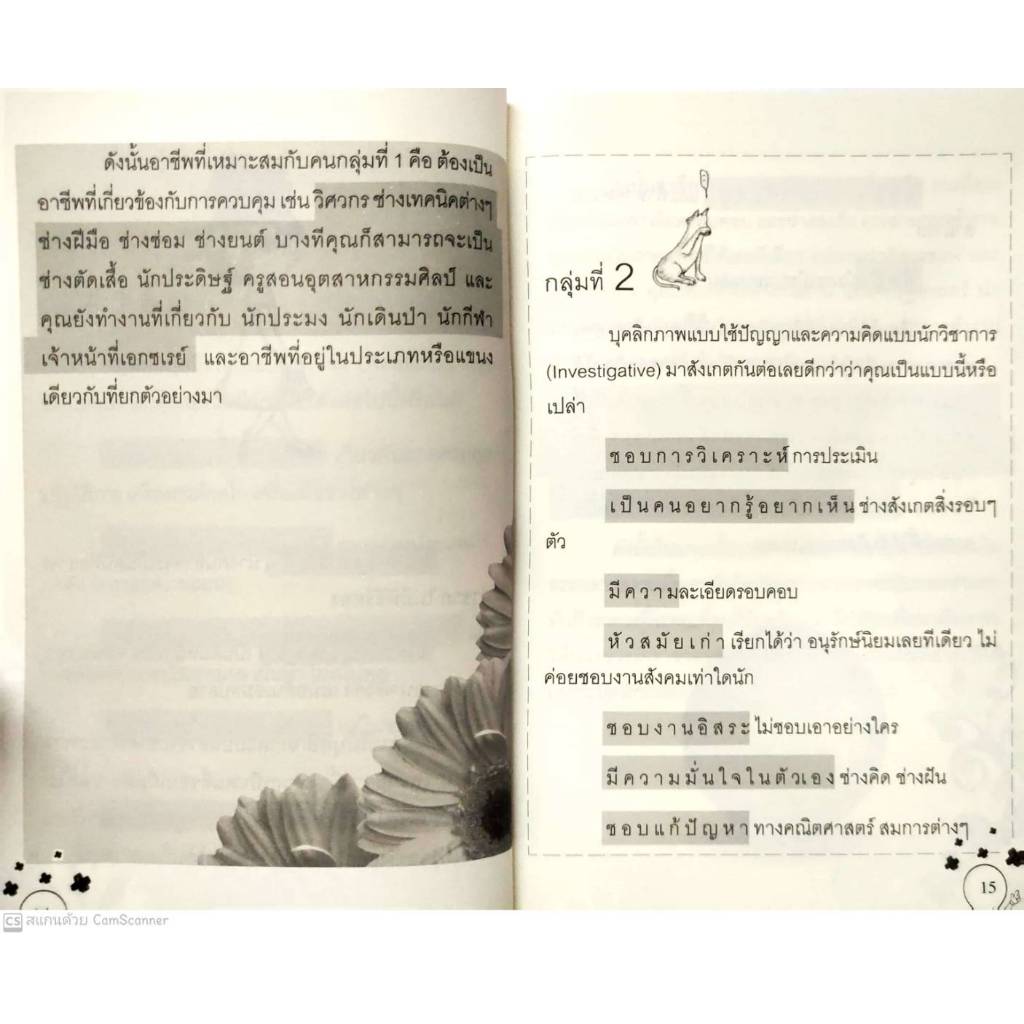 ดังนั้นอาชีพที่เหมาะสมกับคนกลุ่มที่ 1 คือ ต้องเป็น
อาชีพที่เกี่ยวข้องกับการควบคุม เช่น วิศวกร ช่างเทคนิคต่างๆ
ช่างฝีมือ ช่างซ่อม ช่างยนต์ บางทีคุณก็สามารถจะเป็น
ช่างตัดเสื้อ นักประดิษฐ์ ครูสอนอุตสาหกรรมศิลป์ และ
คุณยังทำงานที่เกี่ยวกับ นักประมง นักเดินป่า นักกีฬา
เจ้าหน้าที่เอกซเรย์ และอาชีพที่อยู่ในประเภทหรือแขนง
เดียวกับที่ยกตัวอย่างมา
กลุ่มที่ 2
บุคลิกภาพแบบใช้ปัญญาและความคิดแบบนักวิชาการ
(Investigative) มาสังเกตกันต่อเลยดีกว่าว่าคุณเป็นแบบนี้หรือ
เปล่า
ชอบการวิเคราะห์ การประเมิน
เป็นคนอยากรู้อยากเห็น ช่างสังเกตสิ่งรอบๆ
ตัว
มีความละเอียดรอบคอบ
หัวสมัยเก่า เรียกได้ว่า อนุรักษ์นิยมเลยทีเดียว ไม่
ค่อยชอบงานสังคมเท่าใดนัก
ชอบงานอิสระ ไม่ชอบเอาอย่างใคร
มีความมั่นใจในตัวเอง ช่างคิด ช่างฝัน
ชอบแก้ปัญหา ทางคณิตศาสตร์ สมการต่างๆ
15
CS สแกนด้วย CamScanner